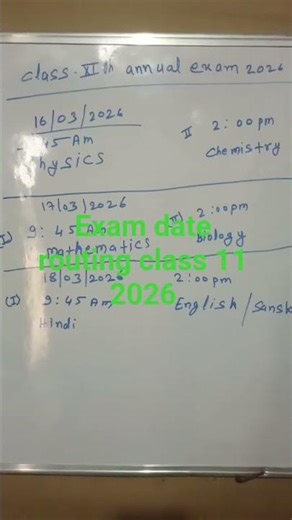 class-XIth annual exam 2026
16/03/2026
45 Am
hysics
II 2:00pm
Chemistry
17/03/2026
I) 9:45 Am
mathematics
II) 2:00pm
Biology
Exam date
routing class 11
2026
18/03/2026
(I) 9:45 Am
Hindi
2:00pm
English/Sansk